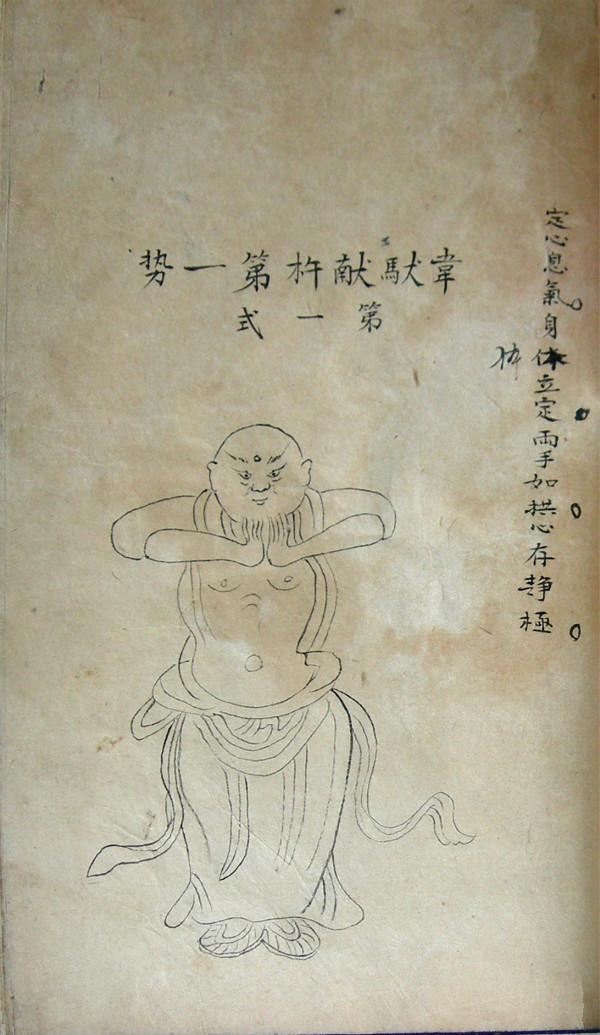 韋馱献杵第一势
第一式
定心息氣身体立定兩手如拱心存静極